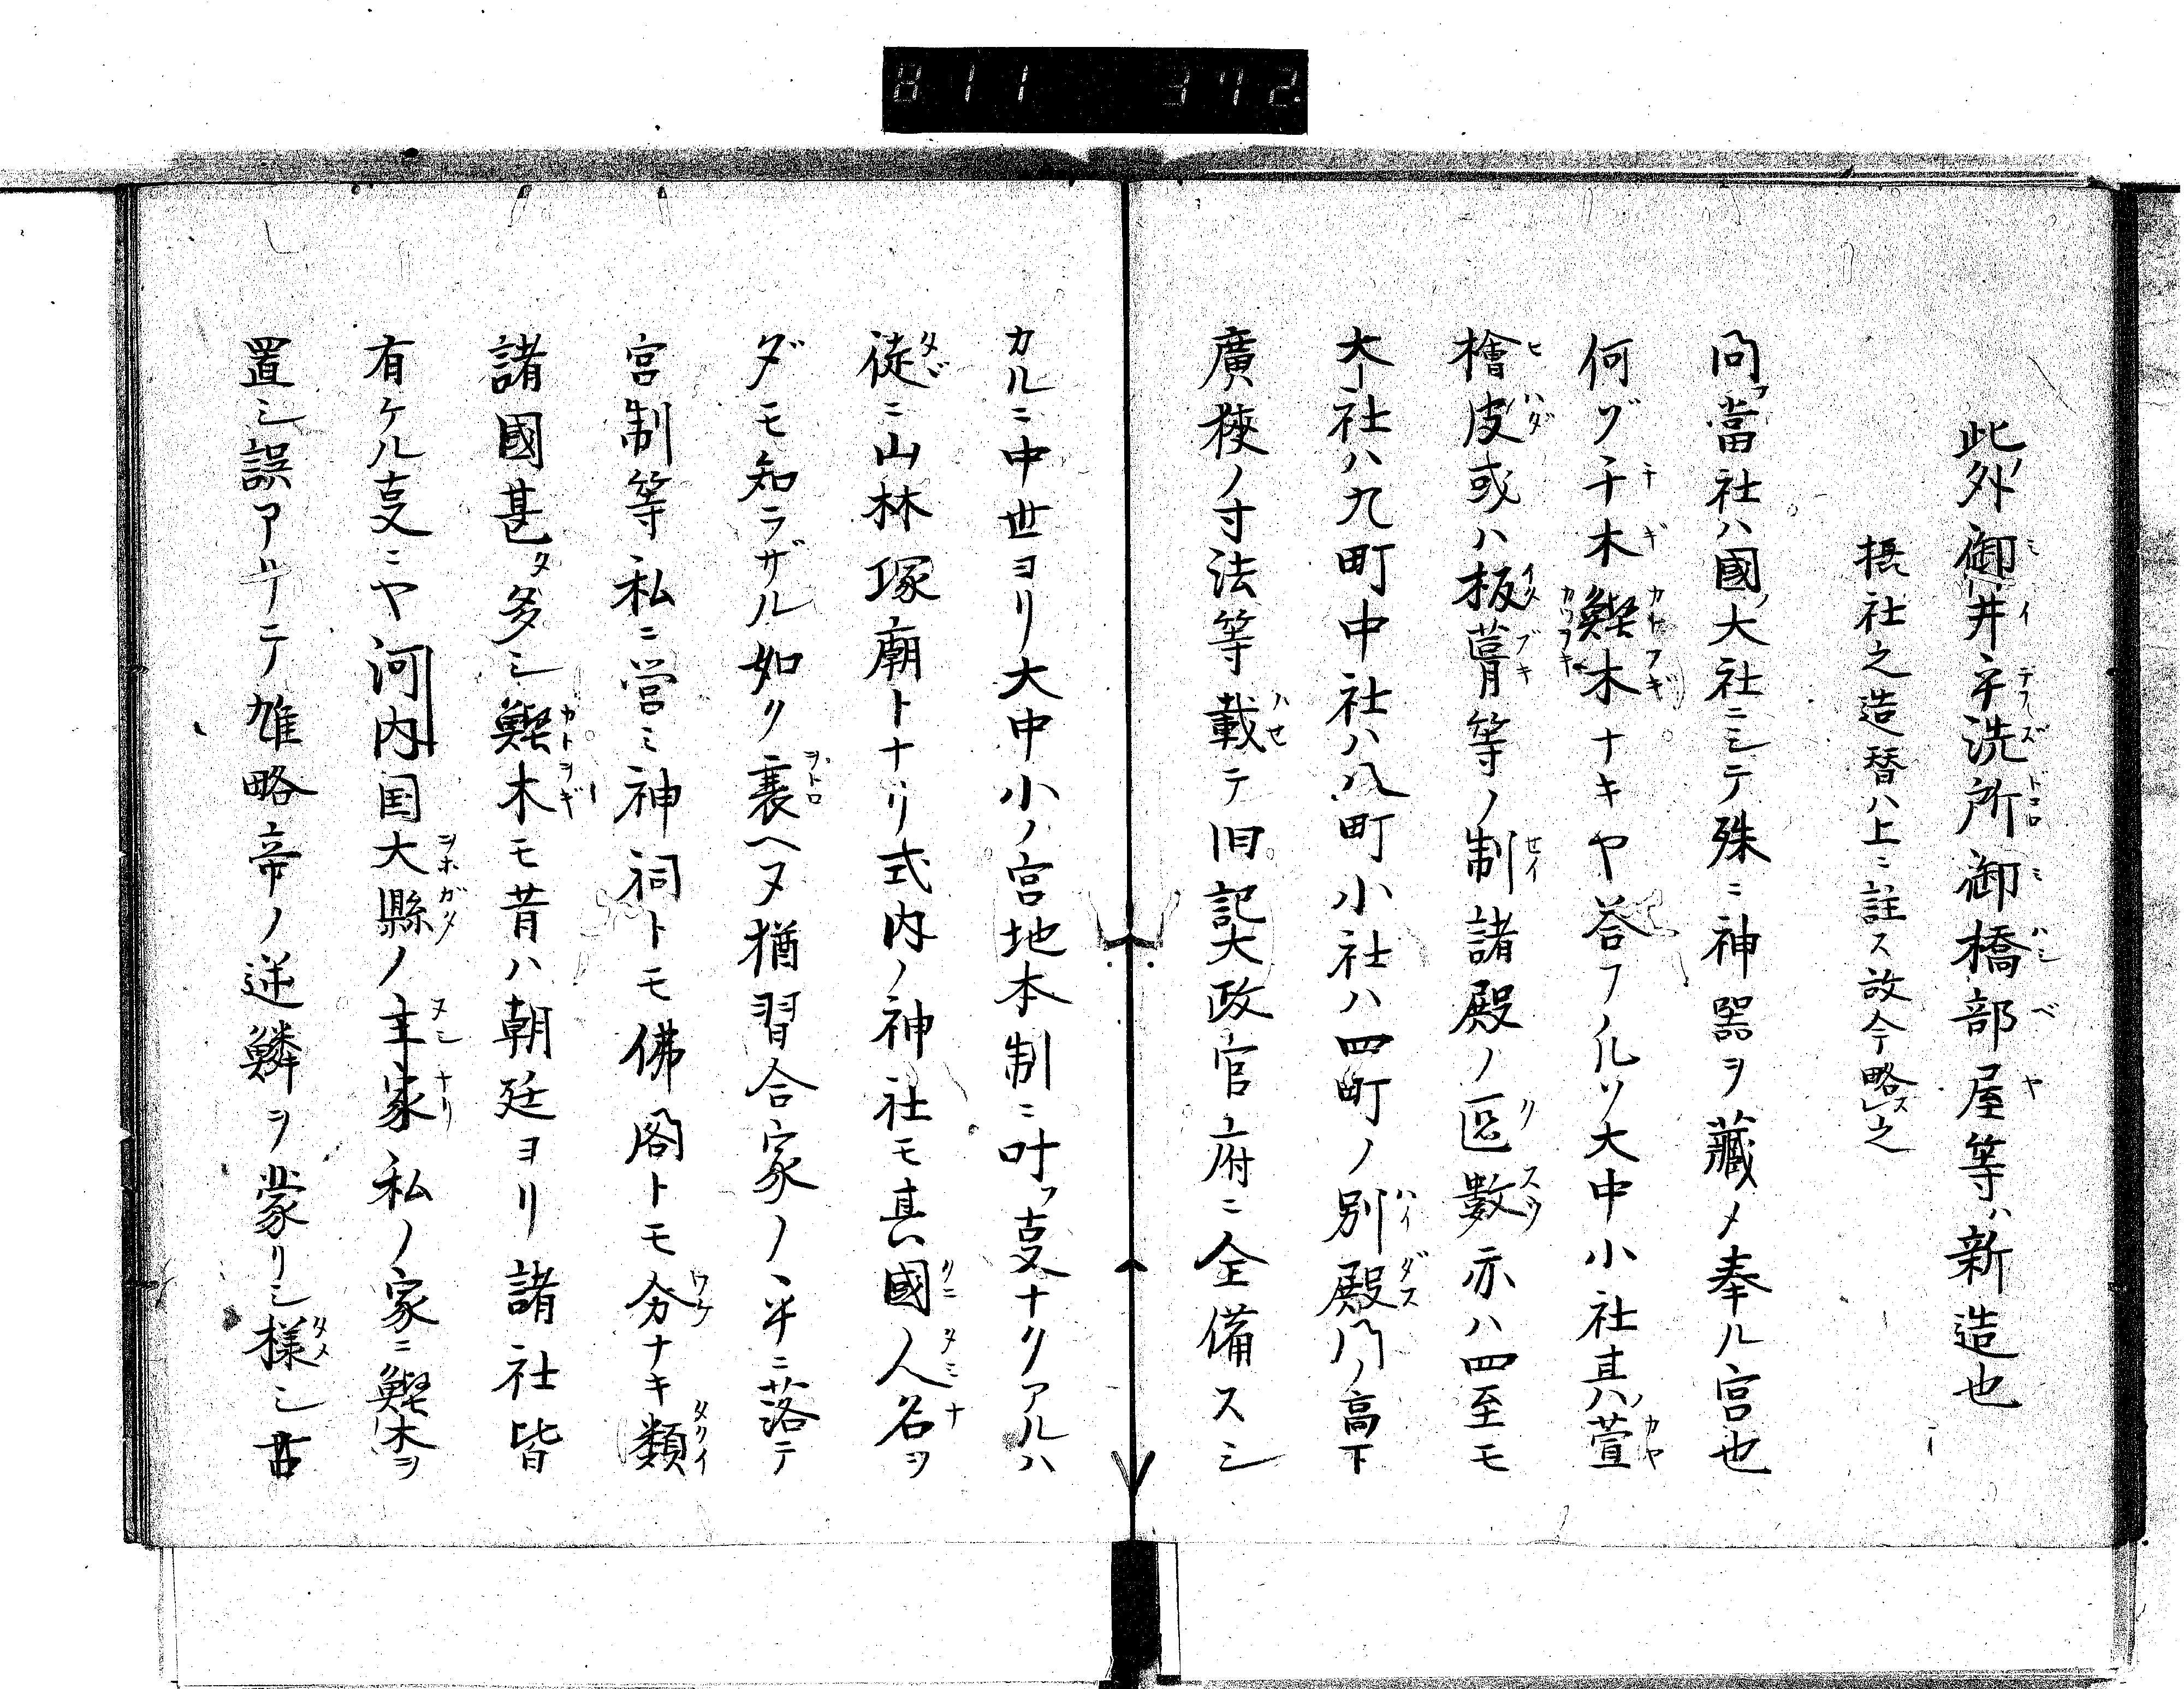 811 372.
此外御井手洗所御橋部屋等ハ新造也
摂社之造替ハ上ニ註ス故今略スレ之
問フ當社ハ國ノ大社ニシテ殊ニ神器ヲ藏メ奉ル宮也
何ゾ千木鰹木ナキヤ答フルソ大中小社其ハ萱
檜皮或ハ板葺等ノ制諸殿ノ區數亦ハ四至モ
大社ハ九町中社ハ八町小社ハ四町ノ別殿門ノ高下
廣狹ノ寸法等載テ旧記大政官府ニ全備スシ
カルニ中世ヨリ大中小ノ宮地本制ニ叶フ叓ナクアルハ
徒ニ山林塚廟トナリ式内ノ神社モ其國人名ヲ
ダモ知ラザル如ク衰ヘヌ猶習合家ノ手ニ落テ
宮制等私ニ営ミ神祠トモ佛閣トモ分ナキ類
諸國甚タ多シ鰹木モ昔ハ朝廷ヨリ諸社皆
有ケル叓ニヤ河内国大縣ノ主家私ノ家ニ鰹木ヲ
置シ誤アリテ雄略帝ノ逆鱗ヲ蒙リシ様シ古